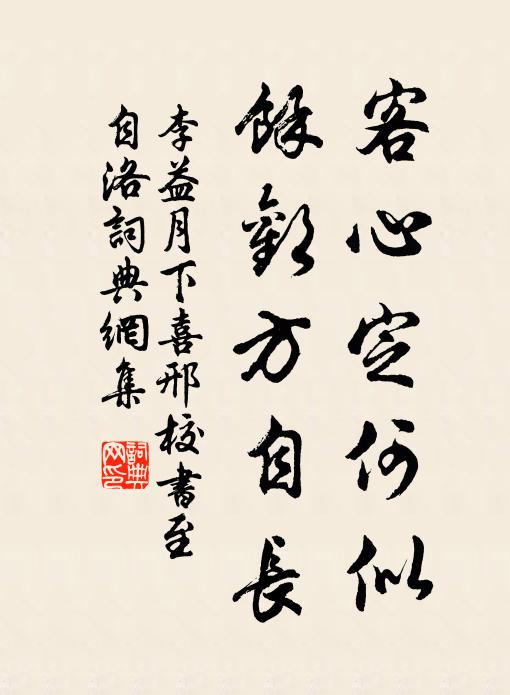 客心定何似
餘歡方自長
李益月下喜邢校書至
自洛詞典網集
詞典
网印